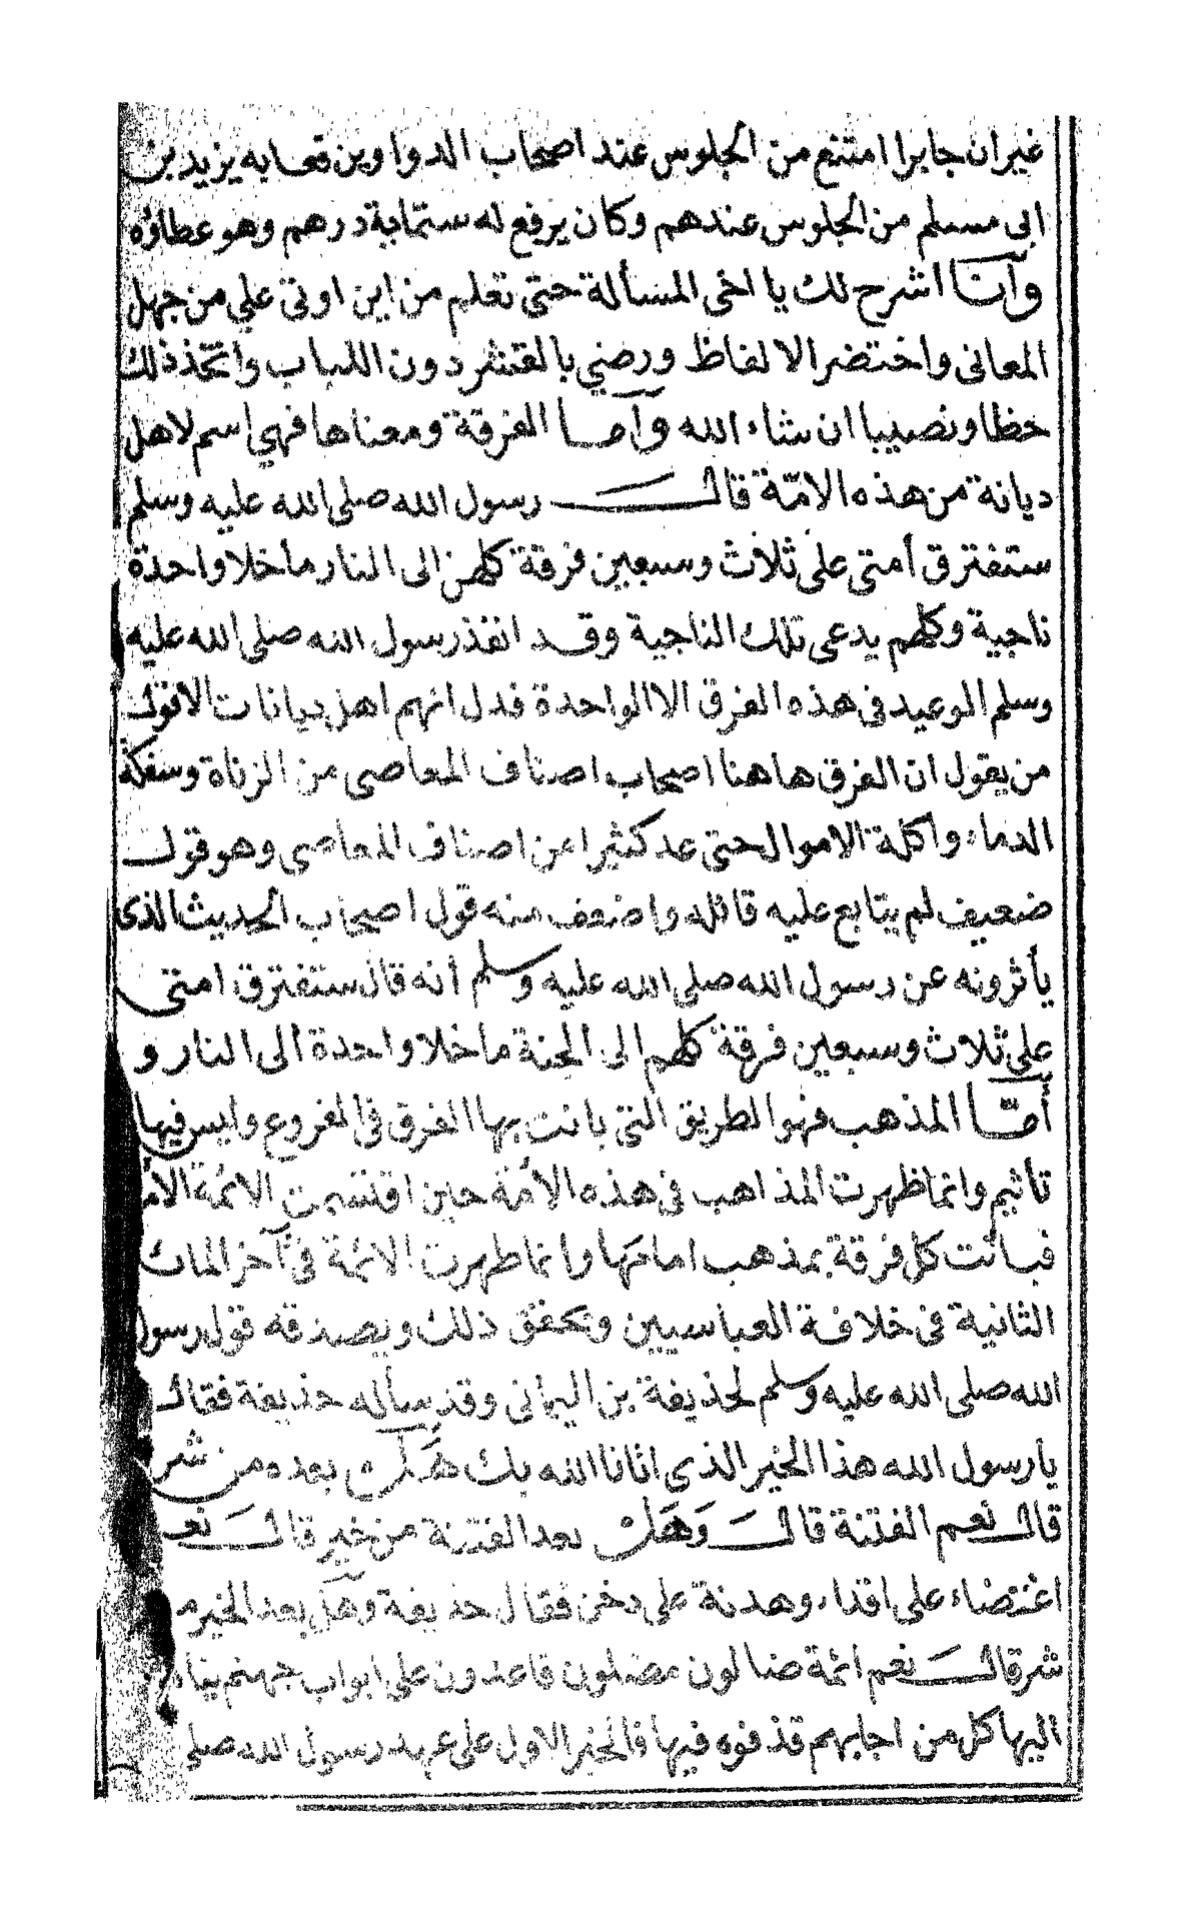 غير ان جابرا امتنع من الجلوس عند اصحاب الدواوين فعابه يزيد بن
ابى مسلم من الجلوس عندهم وكان يرفع له ستماية درهم وهو عطاؤه
وآنا اشرح لك يا اخى المسألة حتى تعلم من اين اوتى علي من جهل
المعانى واختصر الالفاظ ورضي بالقشر دون اللباب واتخذ ذلك
حظا ونصيبا ان شاء الله وآما الفرقة ومعناها فهي اسم لاهل
ديانة من هذه الامّة قال رسول الله صلى الله عليه وسلم
ستفترق أمتى على ثلاث وسبعين فرقة كلهن الى النار ما خلا واحدة
ناجية وكلهم يدعى تلك الناجية وقد انفذ رسول الله صلى الله عليه
وسلم الوعيد فى هذه الفرق الا الواحدة فدل انهم اهل ديانات الا قول
من يقول ان الفرق هاهنا اصحاب اصناف المعاصى من الزناة وسفكة
الدماء واكلة الاموال حتى عد كثيرا من اصناف المعاصى وهو قول
ضعيف لم يتابع عليه قائله واضعف منه قول اصحاب الحديث الذى
يأثرونه عن رسول الله صلى الله عليه وسلم أنه قال ستفترق امتى
على ثلاث وسبعين فرقة كلهم الى الجنة ما خلا واحدة الى النار و
أمّا المذهب فهو الطريق التى بانت بها الفرق فى الفروع وليس فيها
تأثيم وانما ظهرت المذاهب فى هذه الأمة حين اقتسمت الائمة الأم
فبائت كل فرقة بمذهب امامها وانما ظهرت الائمة فى آخر المائ
الثانية فى خلافة العباسيين وتحقق ذلك ويصدقه قول رسول
الله صلى الله عليه وسلم لحذيفة بن اليمانى وقد سأله حذيفة فقال
يا رسول الله هذا الخير الذى اتانا الله بك هَل بعده من شر
قال نعم الفتنة قال وَهَل بعد الفتنة من خير قال نعم
اغتضاء على اقذاء وهدنة على دخن فقال حذيفة وهل بعد الخير م
شر قال نعم ائمة ضالون مضلون قاعدون على ابواب جهنم
اليها كل من اجابهم قذفوه فيها فالخير الاول على عهد رسول الله صلى